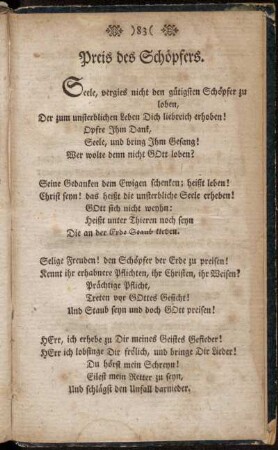 )83(
Preis des Schöpfers.
Seele, vergies nicht den gütigsten Schöpfer zu
loben,
Der zum unsterblichen Leben Dich liebreich erhoben!
Opfre Ihm Dank,
Seele, und bring Ihm Gesang!
Wer wolte denn nicht GOtt loben?
Seine Gedanken dem Ewigen schenken; heisst leben!
Christ seyn! das heißt die unsterbliche Seele erheben!
GOtt sich nicht weyhn:
Heisst unter Thieren noch seyn
Die an der Erde Staub kleben.
Selige Freuden! den Schöpfer der Erde zu preisen!
Kennt ihr erhabnere Pflichten, ihr Christen, ihr Weisen?
Prächtige Pflicht,
Treten vor GOttes Gesicht!
Und Staub seyn und doch GOtt preisen!
HErr, ich erhebe zu Dir meines Geistes Gefieder!
HErr ich lobsinge Dir frölich, und bringe Dir Lieder!
Du hörst mein Schreyn!
Eilest mein Retter zu seyn,
Und schlägst den Unfall darnieder.